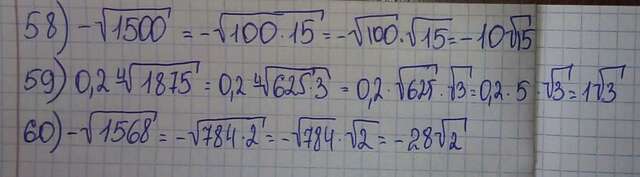 58) -√1500 = -√100·15 = -√100·√15 = -10√15
59) 0,2 ∜1875 = 0,2 ∜625·3 = 0,2·√625·√3 = 0,2·5·√3 = 1√3
60) -√1568 = -√784·2 = -√784·√2 = -28√2